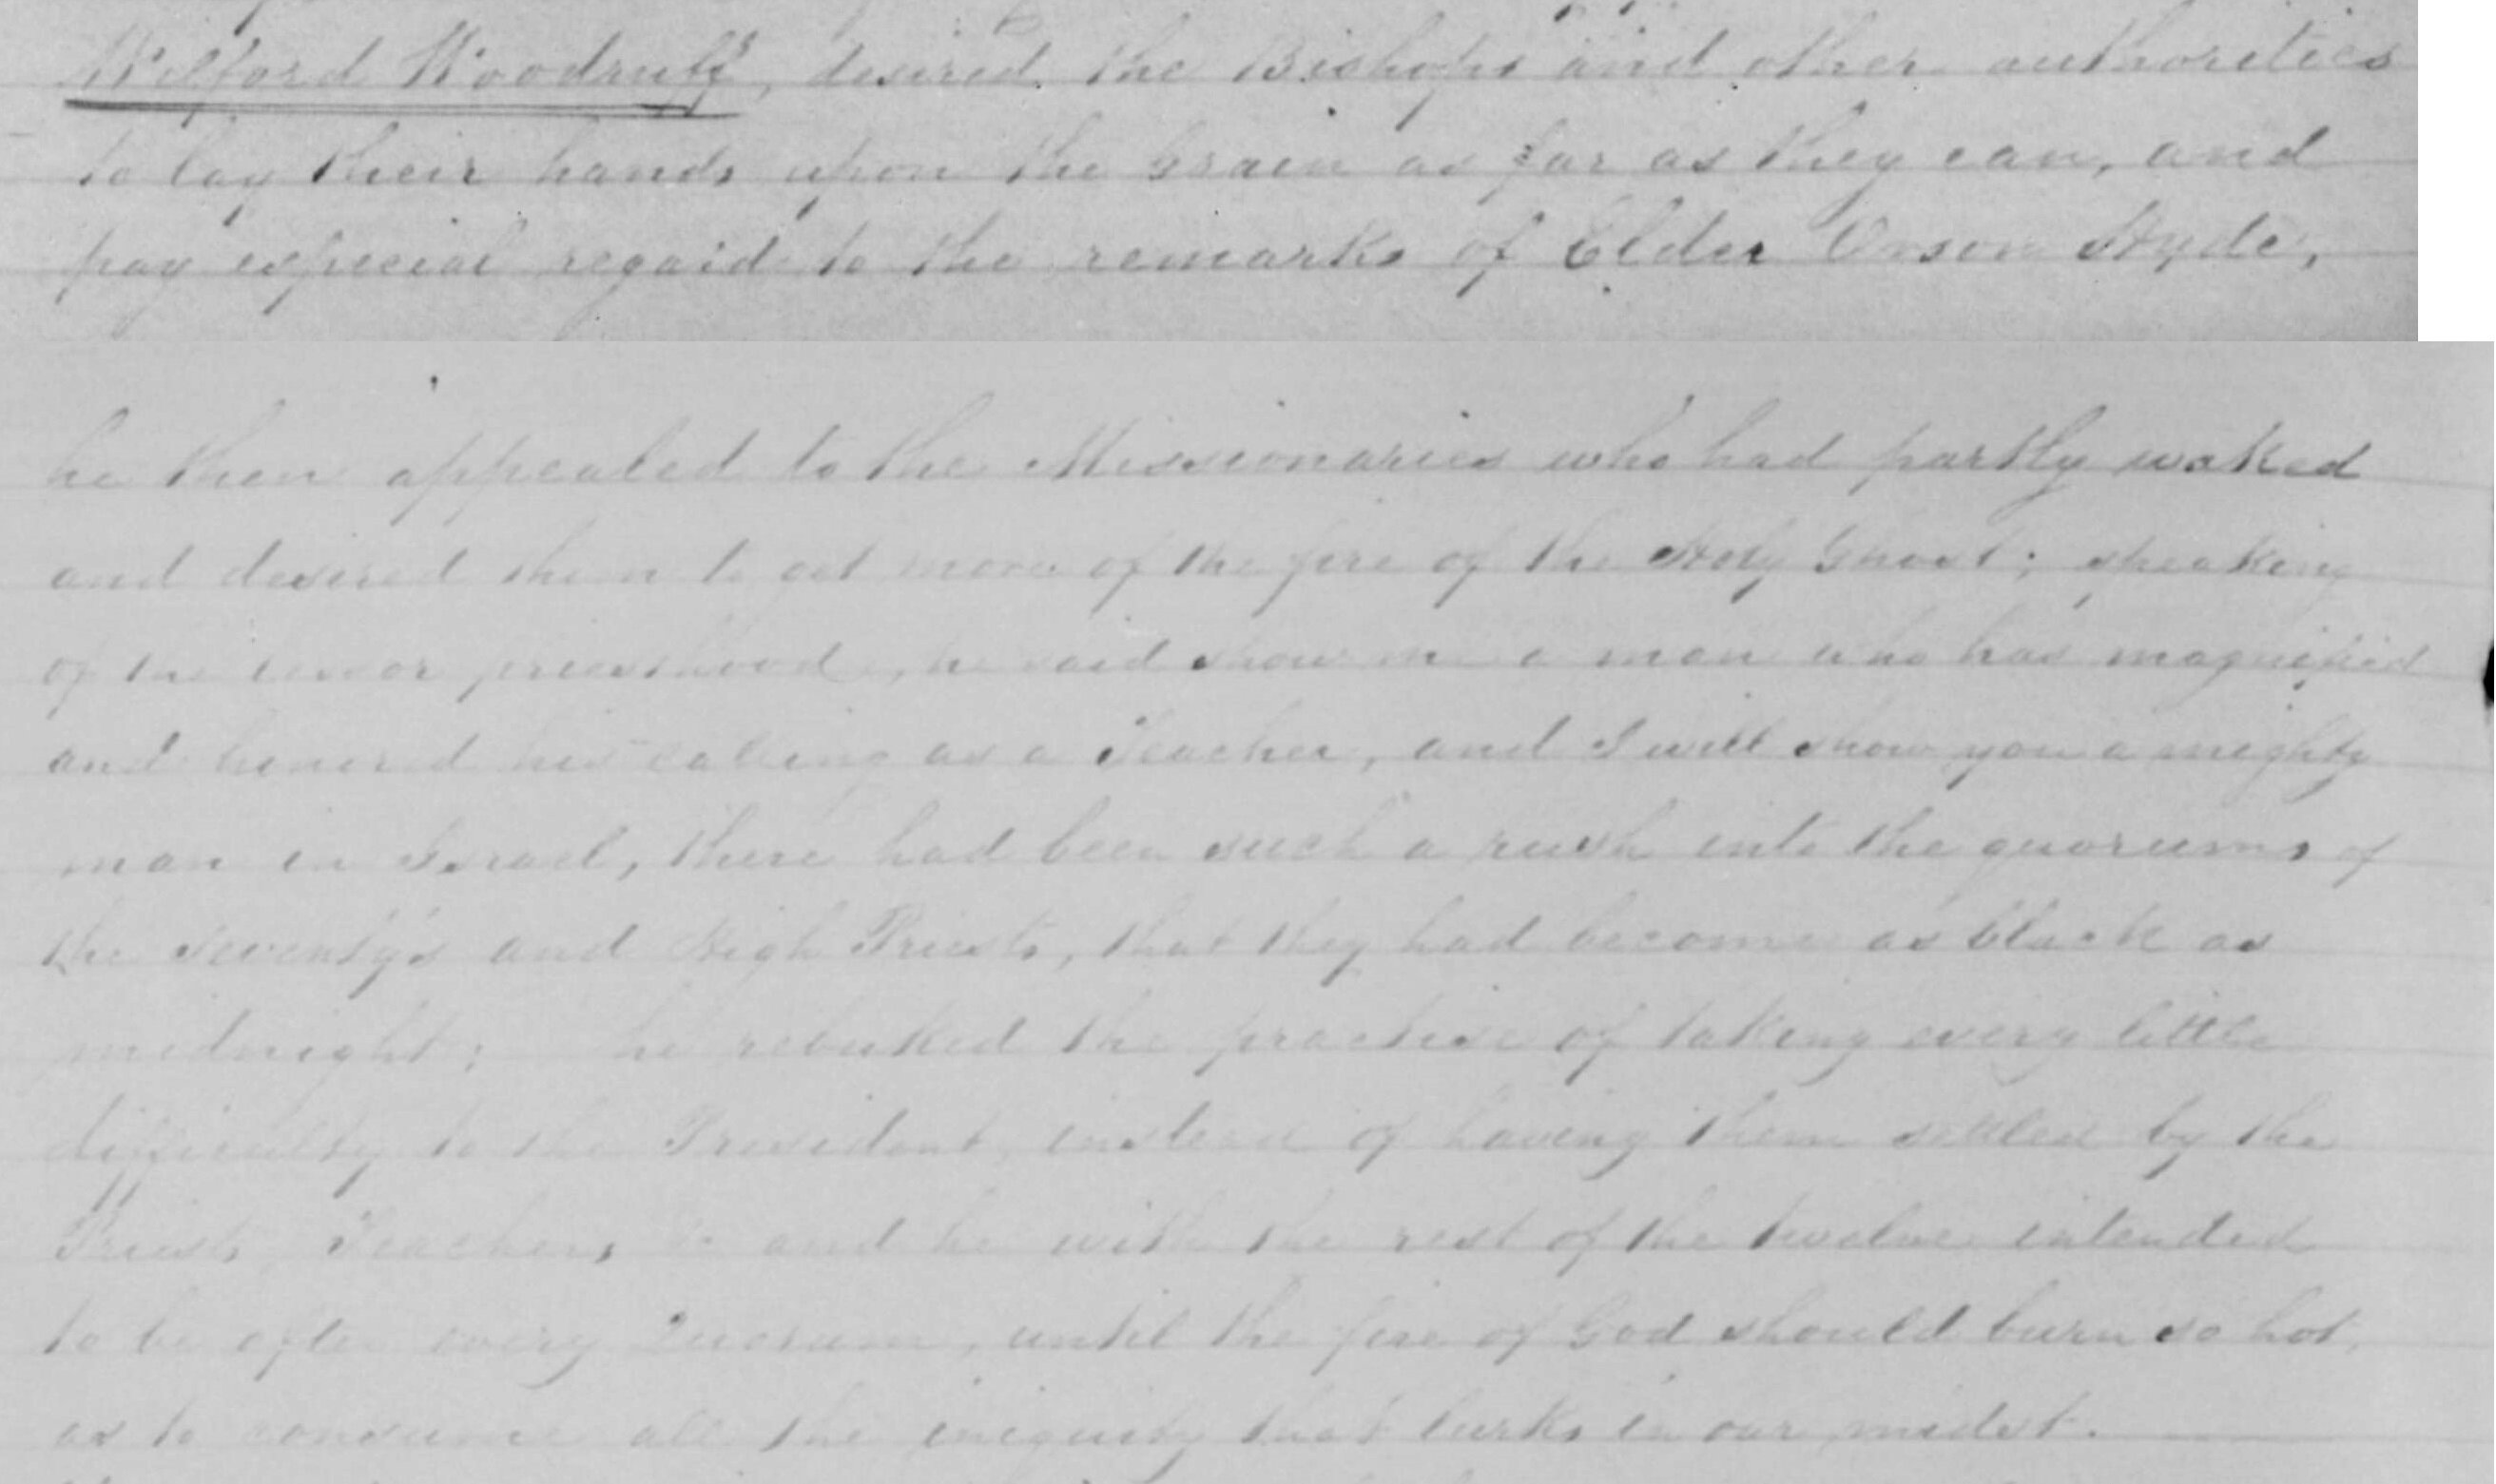 Wilford Woodruff, desired the Bishops and other authorities
to lay their hands upon the Grain as far as they can, and
pay especial regard to the remarks of Elder Orson Hyde,
he then appealed to the Missionaries who had partly waked
and desired them to get more of the fire of the Holy Ghost; speaking
of the lessor priesthood, he said show me a man who has magnified
and honored his calling as a Teacher, and I will show you a mighty
man in Israel, there had been such a rush into the quorums of
the Seventy's and High Priests, that they had become as black as
midnight; he rebuked the practise of taking every little
difficulty to the President, instead of having them settled by the
Priests, Teachers &c and he with the rest of the twelve intended
to be after every Quorum, until the fire of God should burn so hot,
as to consume all the iniquity that lurks in our midst.